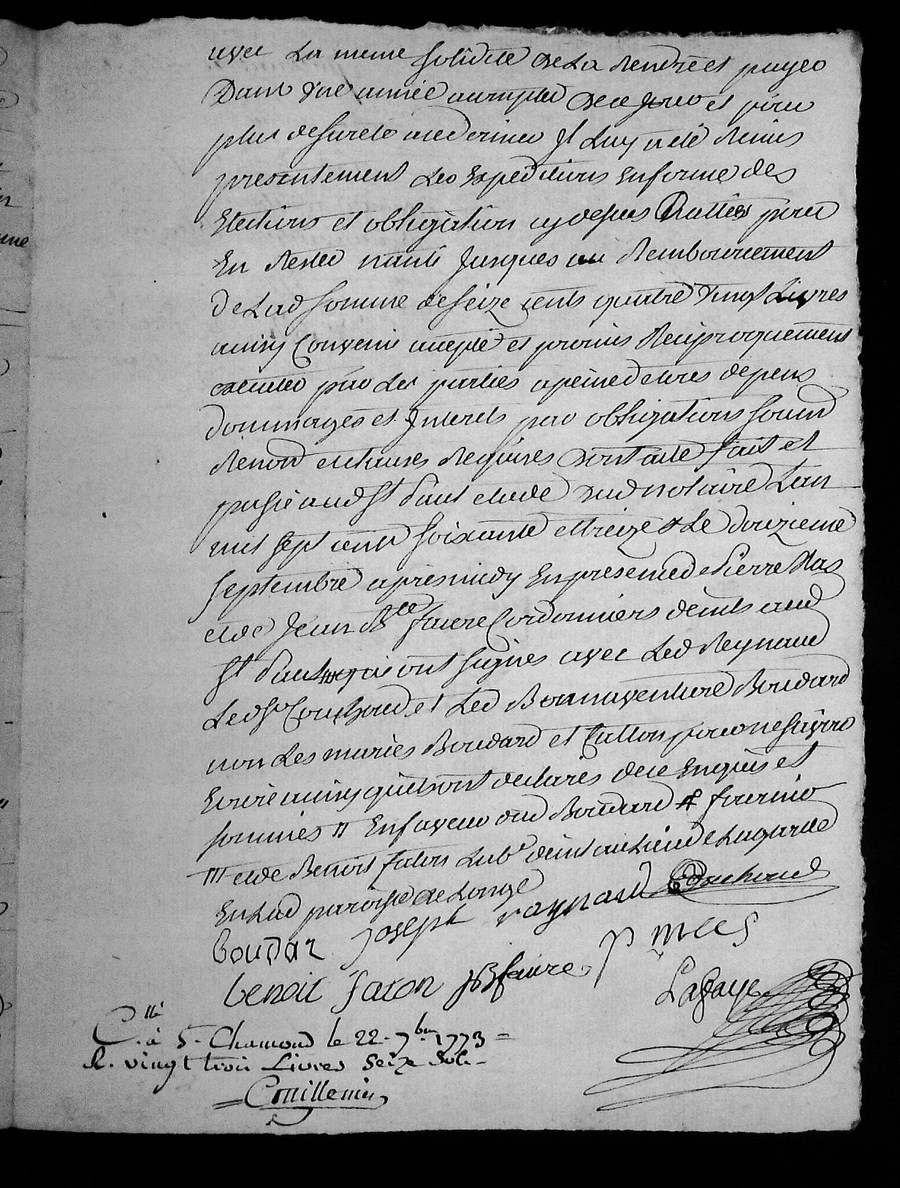 avec La meme solidité de La Rendre et payer
Dans Une année a compter de ce jour et pour
plus de sureté ce dernier Il Luy a été Remis
presentement Les Expeditions En forme des
Elections et obligation cydessus Dattées pour
En Rester nanti Jusques au Remboursement
de Lad somme de seize cents quatre Vingt Livres
ainsy Convenu accepté et promis Reciproquement
executer par Les parties a peine de tous depens
dommages et Interets par obligations soumd
Renond et clauses Requises dont acte fait et
passé aud St Paul etude dud notaire L'an
mil sept cent soixante et treize & Le douzieme
septembre apres midy En presence de Pierre Mas
et de Jean Bte faure Cordonniers demts aud
St Paul III qui ont signés avec Led Reynaud
Led Sr Couchoud et Led Bonnaventure Boudard
non Les mariés Boudard et fatton pour ne sçavoir
Ecrire ainsy quils ont declarés de ce Enquis et
sommés II En faveur dud Boudard # fournir
III et de Benoit faton Labr demt au Lieu de Lagarde
En Lad paroisse de Longe
boudar joseph raynaud Couchoud
benoit faton JB faure p mas
Lafaye
C.llé à St Chamond le 22. 7bre 1773 =
R. vingt trois Livres seize sols
Couillemin